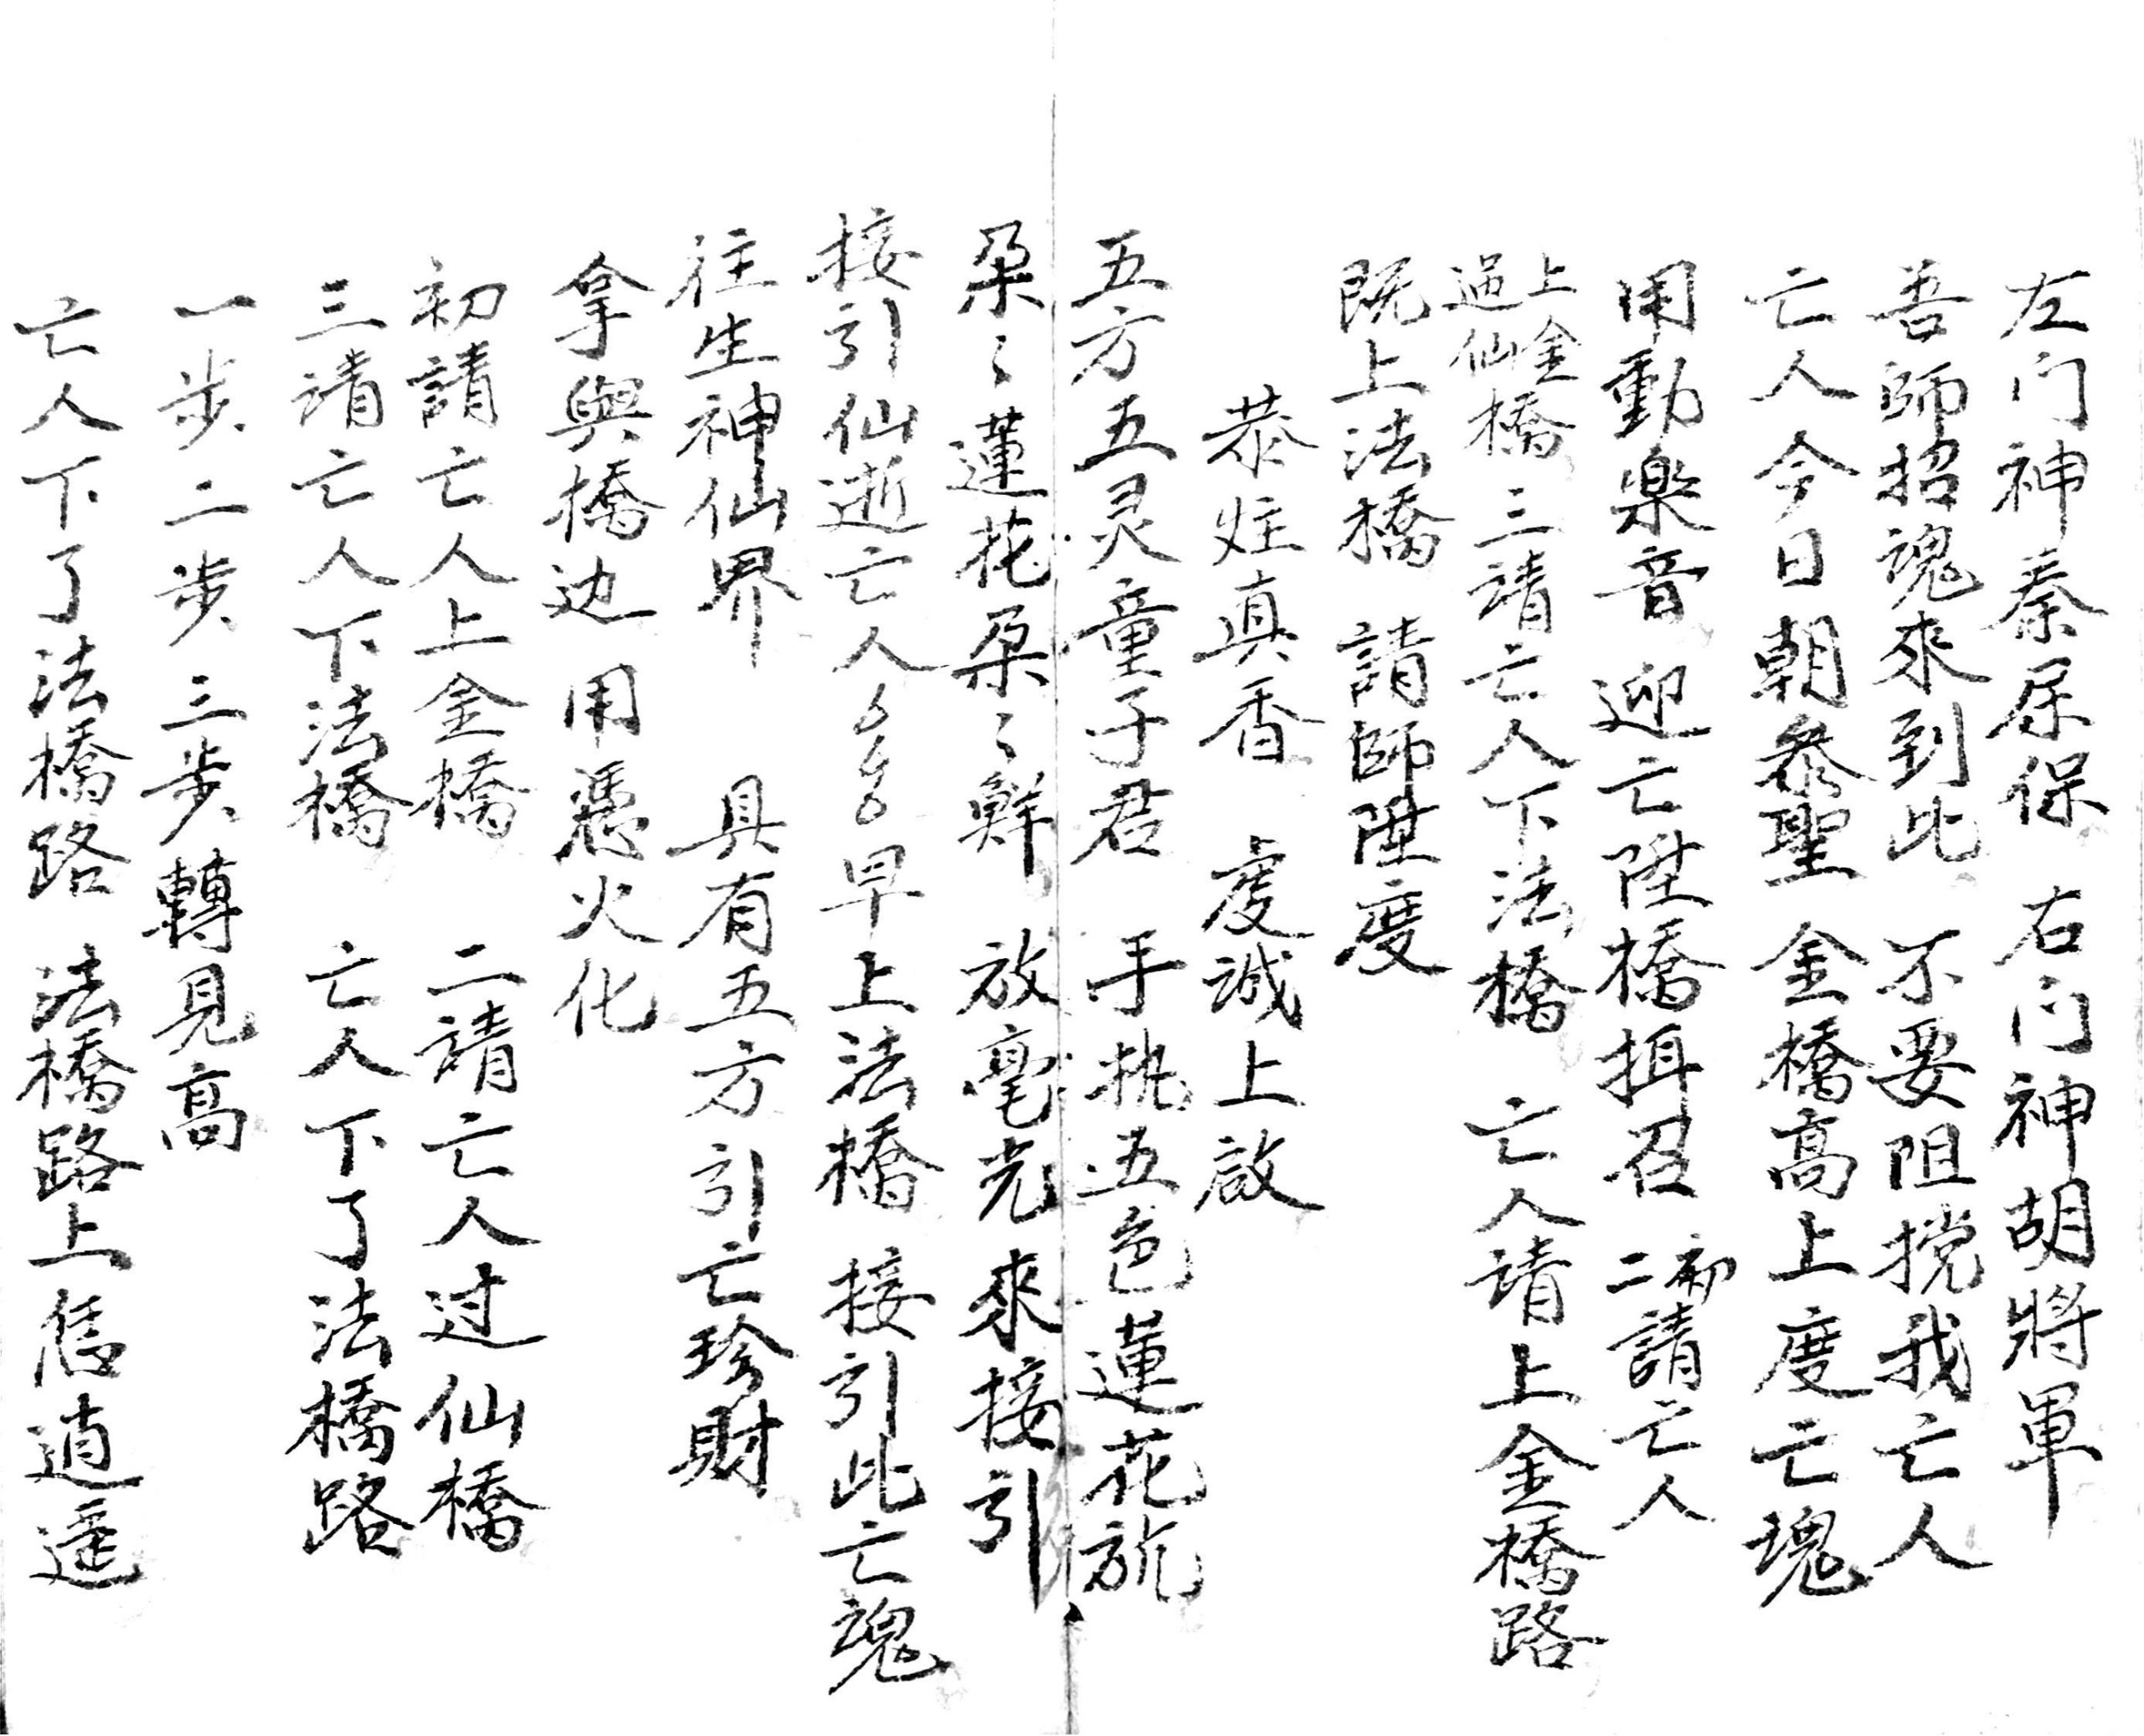 左门神秦尿保　右门神胡將軍
吾師招魂來到此　不要阻挠我亡人
亡人今日朝參聖　金橋高上度亡魂
用動樂音　迎亡陞橋揖召　初二請亡人
上金過仙橋　三请亡人下法橋　亡人请上金橋路
既上法橋　請師陞度
恭炷真香　虔誠上啟
五方五灵童子君　手执五色蓮花旎
朶〻蓮花朶〻鮮　放毫光來接引
接引仙逝亡人　早上法橋　接引此亡魂
往生神仙界　具有五方引亡珍財
拿與橋边　用憑火化
初請亡人上金橋　二請亡人过仙橋
三请亡人下法橋　亡人下了法橋路
一步二步三步轉見高
亡人下了法橋路　法橋路上恁逍遥